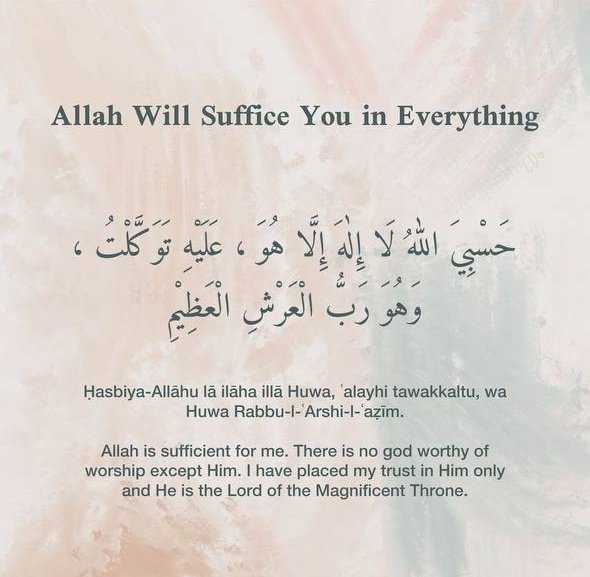 Allah Will Suffice You in Everything
حَسْبِيَ اللهُ لَا إِلٰهَ إِلَّا هُوَ ، عَلَيْهِ تَوَكَّلْتُ ،
وَهُوَ رَبُّ الْعَرْشِ الْعَظِيْمِ
Ḥasbiya-Allāhu lā ilāha illā Huwa, ʿalayhi tawakkaltu, wa
Huwa Rabbu-l-ʿArshi-l-ʿaẓīm.
Allah is sufficient for me. There is no god worthy of
worship except Him. I have placed my trust in Him only
and He is the Lord of the Magnificent Throne.